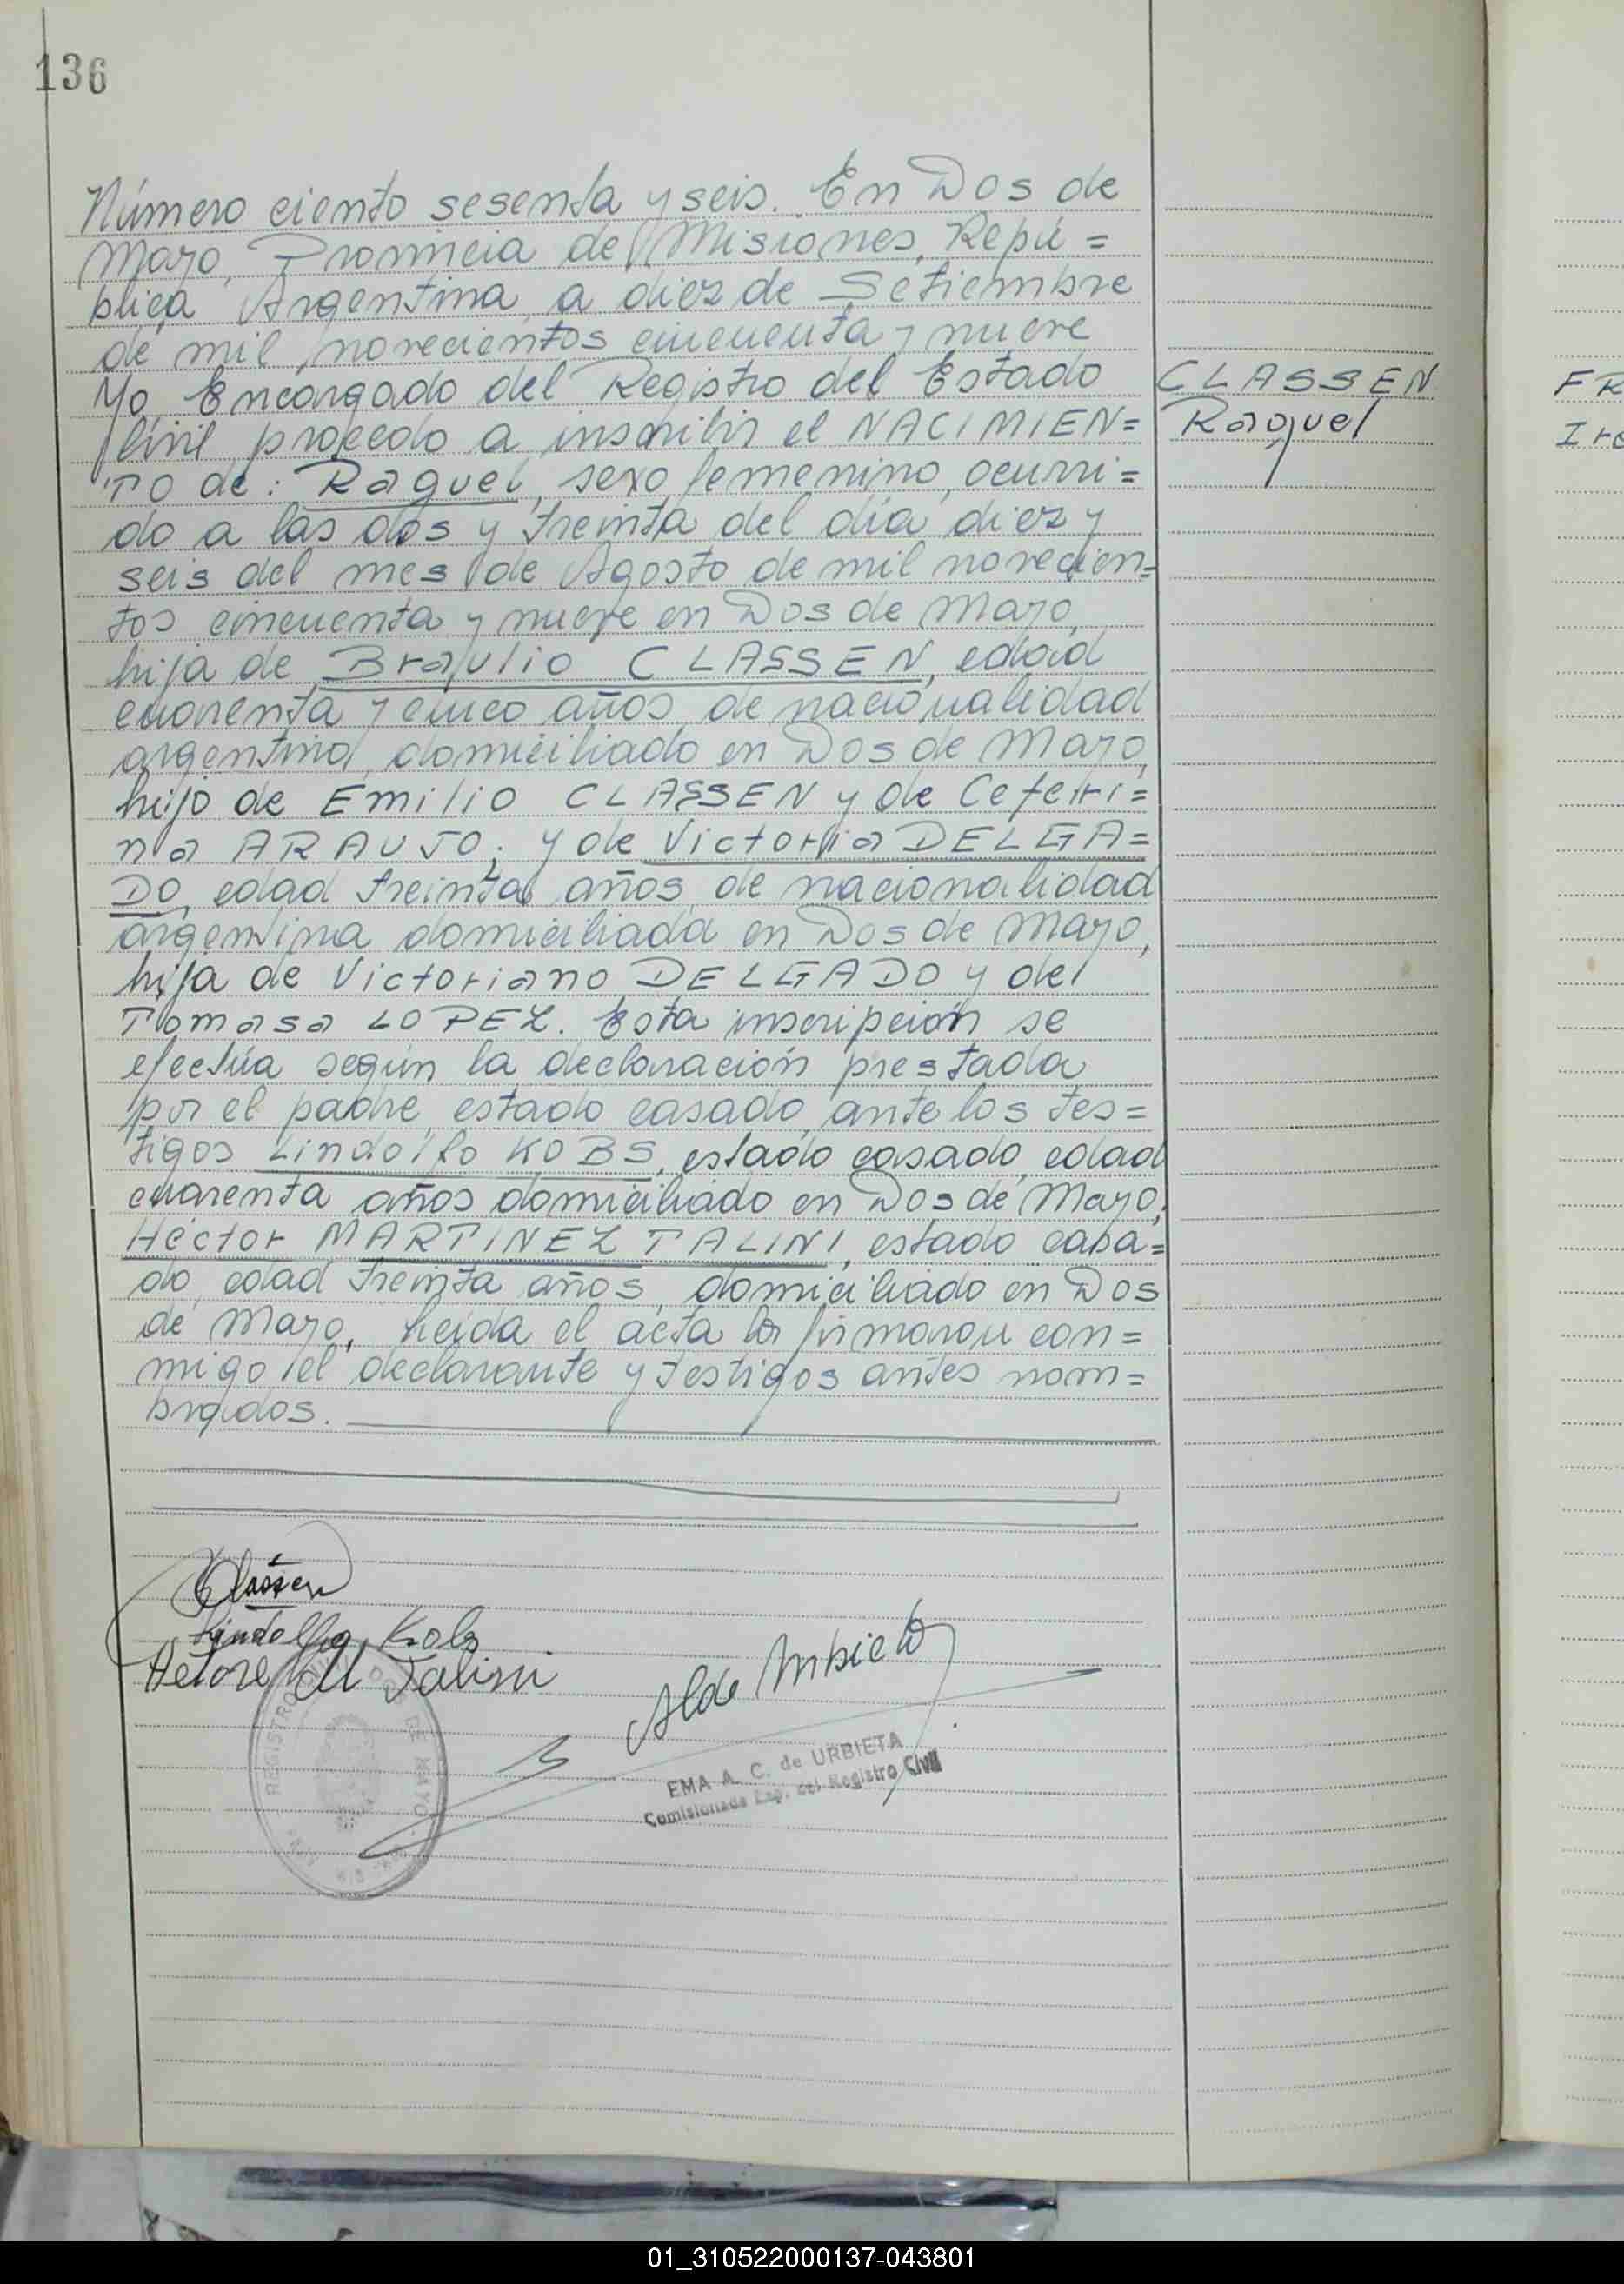 136
Número ciento sesenta y seis. En Dos de
Mayo, Provincia de Misiones, Repú=
blica Argentina, a diez de Setiembre
de mil novecientos cincuenta y nueve
Yo, Encargado del Registro del Estado
Civil, procedo a inscribir el NACIMIEN=
TO de: Raquel, sexo femenino, ocurri=
do a las dos y treinta del día diez y
seis del mes de Agosto de mil novecien=
tos cincuenta y nueve en Dos de Mayo,
hija de Braulio CLASSEN, edad
cuarenta y cinco años, de nacionalidad
argentina, domiciliado en Dos de Mayo,
hijo de Emilio CLASSEN y de Ceferi=
na ARAUJO; y de Victoria DELGA=
DO, edad treinta años, de nacionalidad
argentina domiciliada en Dos de Mayo,
hija de Victoriano DELGADO y de
Tomasa LOPEZ. Esta inscripción se
efectúa según la declaración prestada
por el padre, estado casado, ante los tes=
tigos Lindolfo KOBS, estado casado, edad
cuarenta años domiciliado en Dos de Mayo,
Héctor MARTINEZ TALINI, estado casa=
do, edad treinta años, domiciliado en Dos
de Mayo, Leída el acta la firmaron con=
migo el declarante y testigos antes nom=
brados.
CLASSEN
Raquel
FR
Ire
Classen
Lindolfo Kobs
M Talini
EMA A. C. de URBIETA
Comisionada Esp. del Registro Civil
REGISTRO CIVIL DOS DE MAYO
01_310522000137-043801